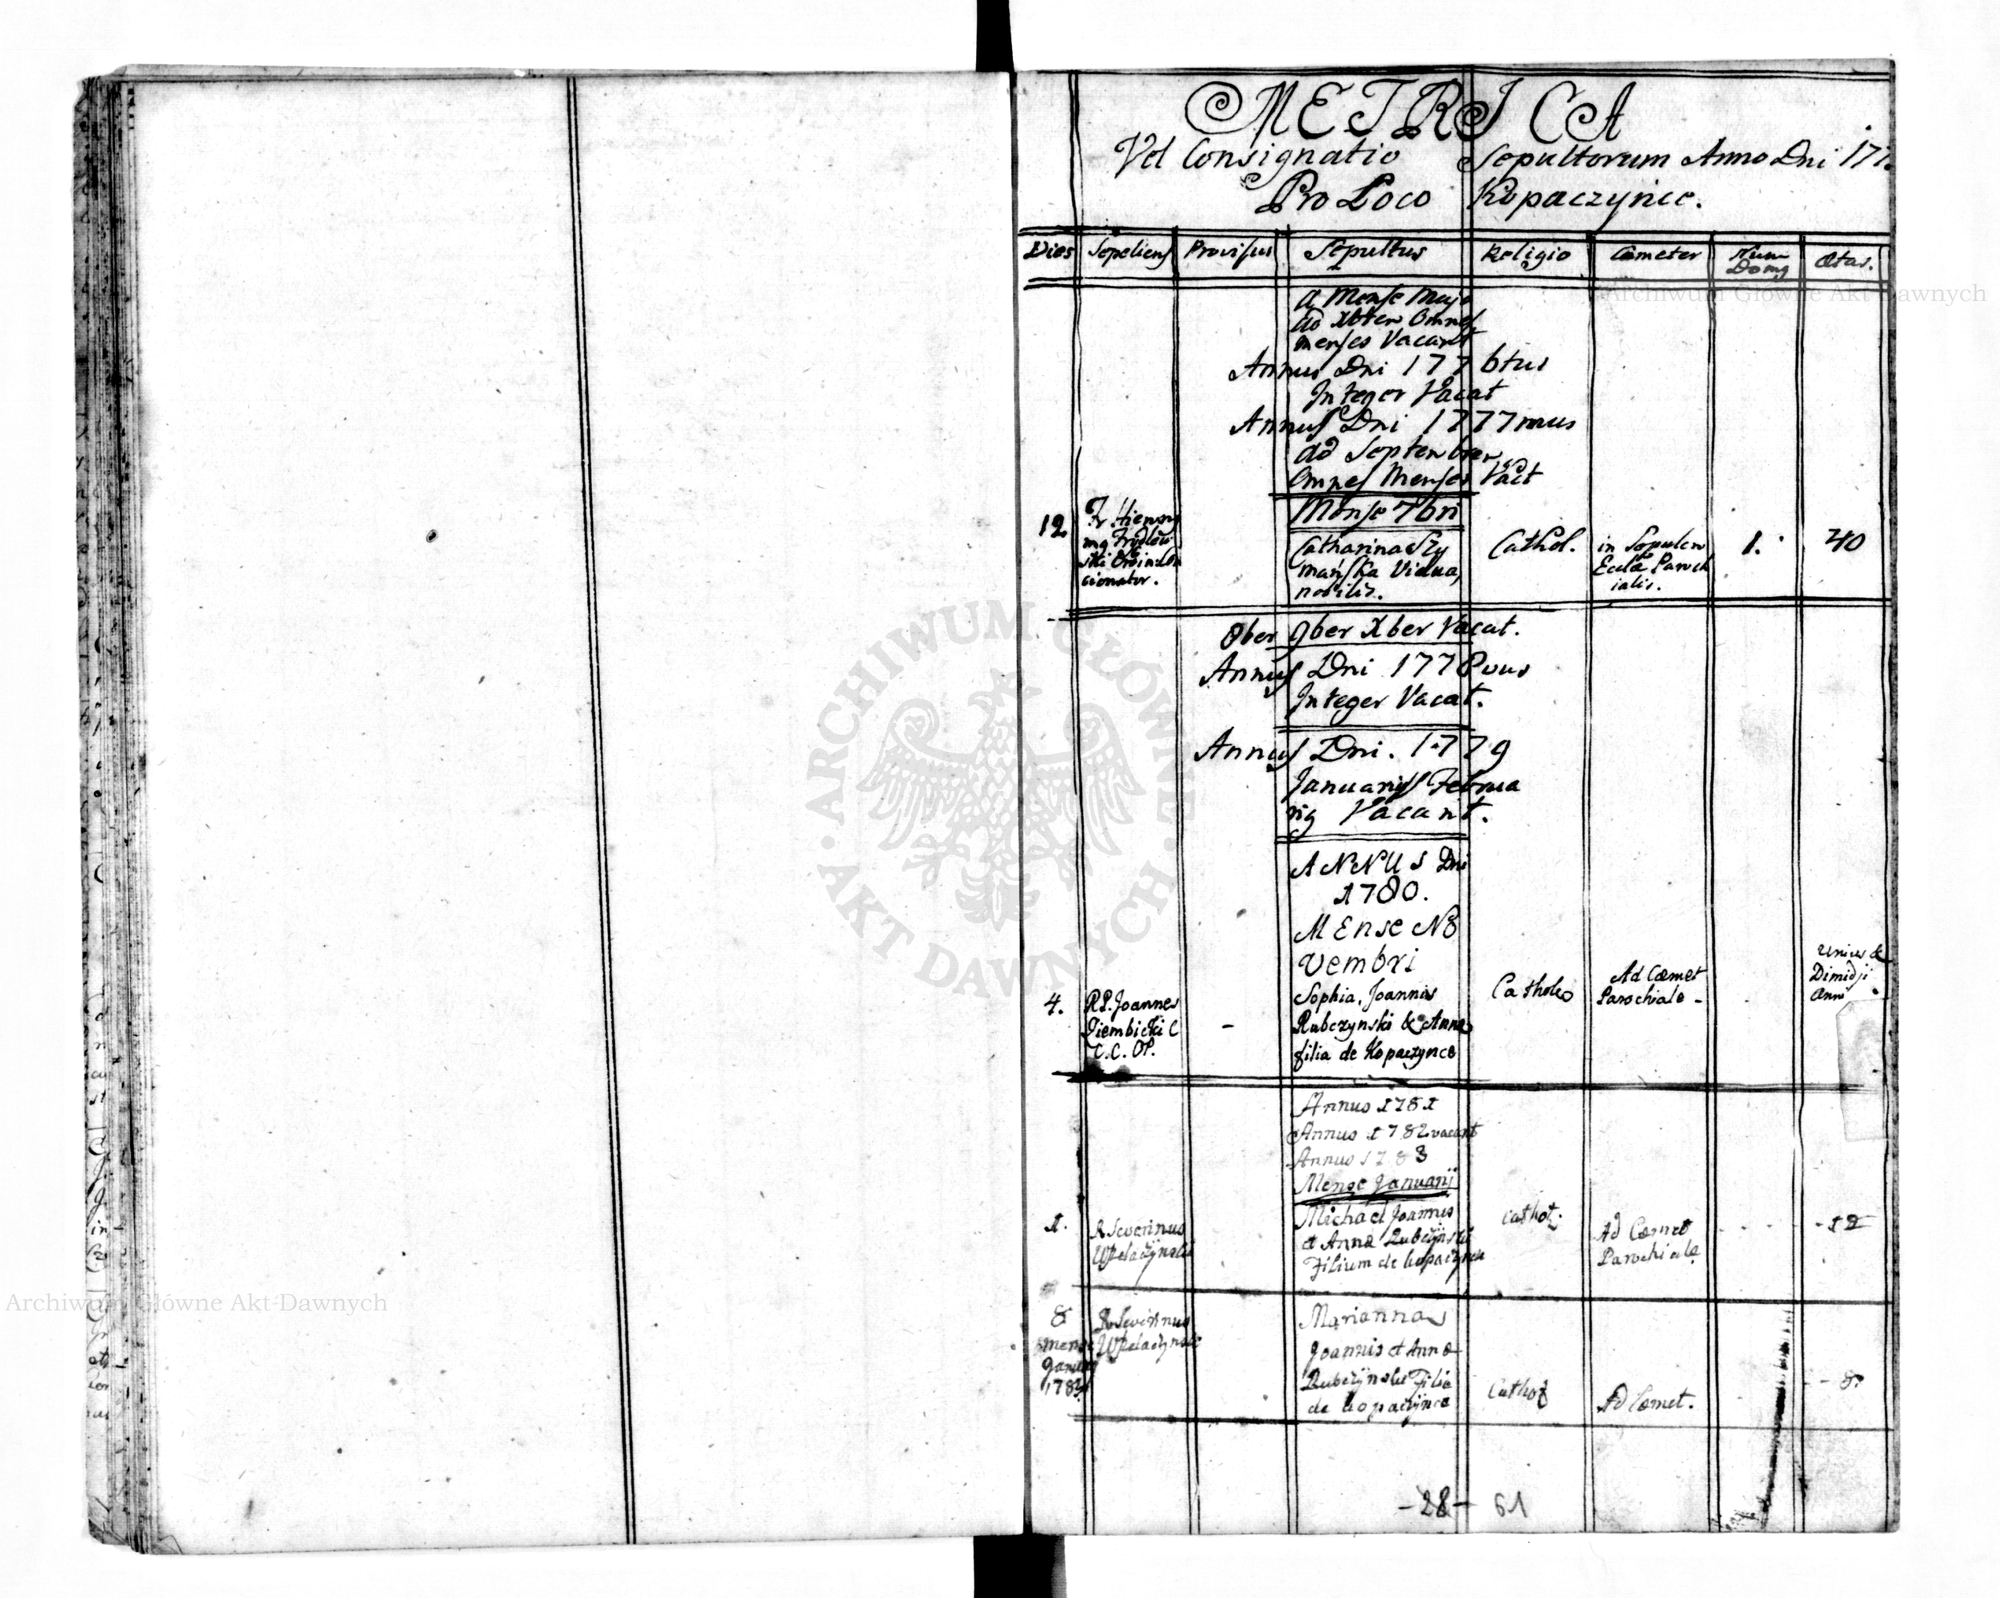 METRICA
Vel Consignatio Sepultorum Anno Dni 177
Pro Loco Kopaczynce.
Dies Sepeliens Provisus Sepultus Religio Cœmeter Num Ætas.
Domg
A Mense Majo
ad Xbrem Omnes
menses Vacant
Annus Dni 1776tus
Integer Vacat
Annus Dni 1777mus
ad Septembrem
Omnes Menses Vact
Mense 7bri
12. Fr Hierony
mg
ski Ord
cionator.
Catharina Szy
mańska Vidua,
nobilis.
Cathol.
in Sepulcro
Eccłæ Paroch
ialis.
1.
40
8ber 9ber Xber Vacat.
Annus Dni 1778vus
Integer Vacat.
Annus Dni. 1779
Januariis Februa
rig Vacant.
ANNUS Dni
1780.
MEnse No
vembri
4. R.P. Joannes
Ziembicki C
C.C. OP.
-
Sophia, Joannis
Rubczynski & Anna
filia de Kopaczynce
Catholo
Ad Cœmet
Parochiale -
Unius &
Dimidji
Anni
Annus 1781
Annus 1782 vacant
Annus 1783
Mense Januarij
1. R Severinus
Michael Joannis
et Anna Rubczynski
Filium de kopaczynce
Cathol.
Ad Cœmet
Parochiale
- 12
8
mense
Januarij
R Severinus
Marianna
Joannis et Annæ
Rubczynski Filia
de kopaczynce
Cathol
Ad Cœmet.
- 8.
-28- 61
Archiwum Główne Akt Dawnych
ARCHIWUM GŁÓWNE · AKT DAWNYCH ·
Archiwum Główne Akt Dawnych